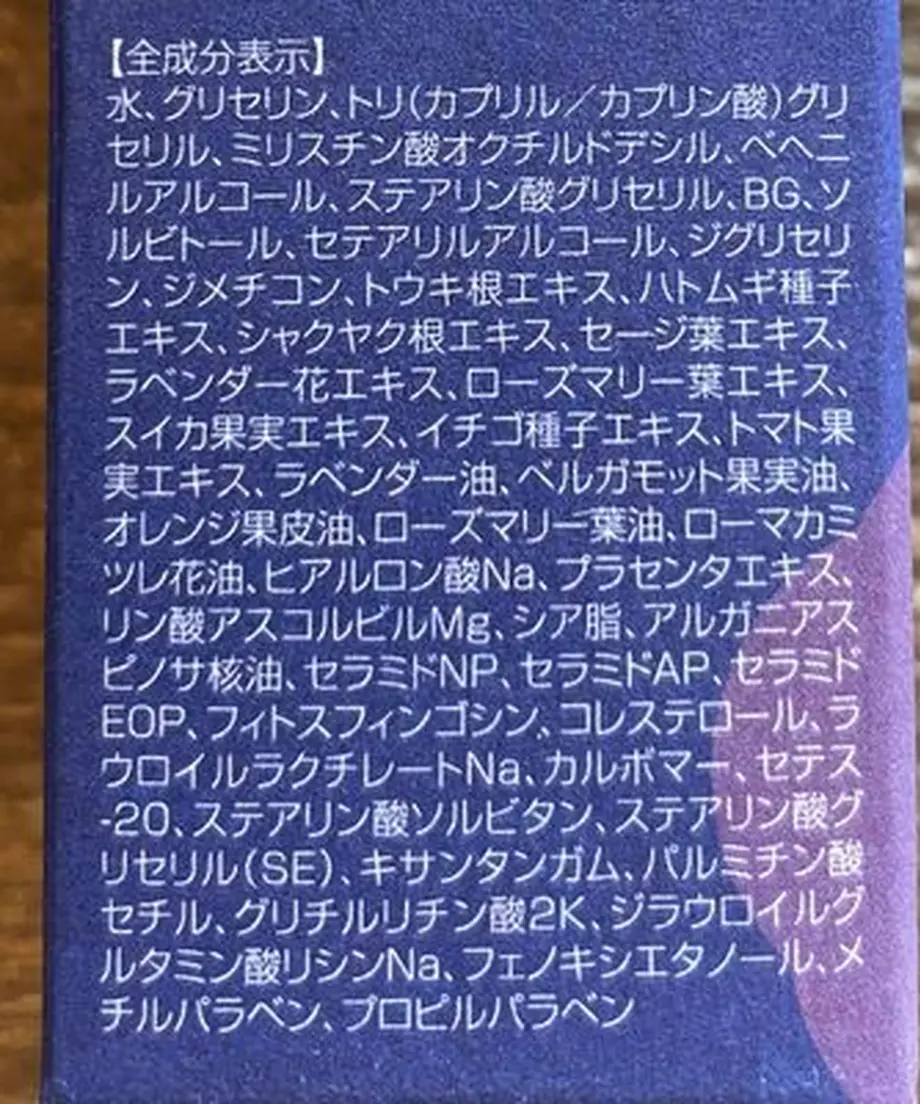 【全成分表示】
水、グリセリン、トリ(カプリル／カプリン酸)グリ
セリル、ミリスチン酸オクチルドデシル、ベヘニ
ルアルコール、ステアリン酸グリセリル、BG、ソ
ルビトール、セテアリルアルコール、ジグリセリ
ン、ジメチコン、トウキ根エキス、ハトムギ種子
エキス、シャクヤク根エキス、セージ葉エキス、
ラベンダー花エキス、ローズマリー葉エキス、
スイカ果実エキス、イチゴ種子エキス、トマト果
実エキス、ラベンダー油、ベルガモット果実油、
オレンジ果皮油、ローズマリー葉油、ローマカミ
ツレ花油、ヒアルロン酸Na、プラセンタエキス、
リン酸アスコルビルMg、シア脂、アルガニアス
ピノサ核油、セラミドNP、セラミドAP、セラミド
EOP、フィトスフィンゴシン、コレステロール、ラ
ウロイルラクチレートNa、カルボマー、セテス
-20、ステアリン酸ソルビタン、ステアリン酸グ
リセリル(SE)、キサンタンガム、パルミチン酸
セチル、グリチルリチン酸2K、ジラウロイルグ
ルタミン酸リシンNa、フェノキシエタノール、メ
チルパラベン、プロピルパラベン